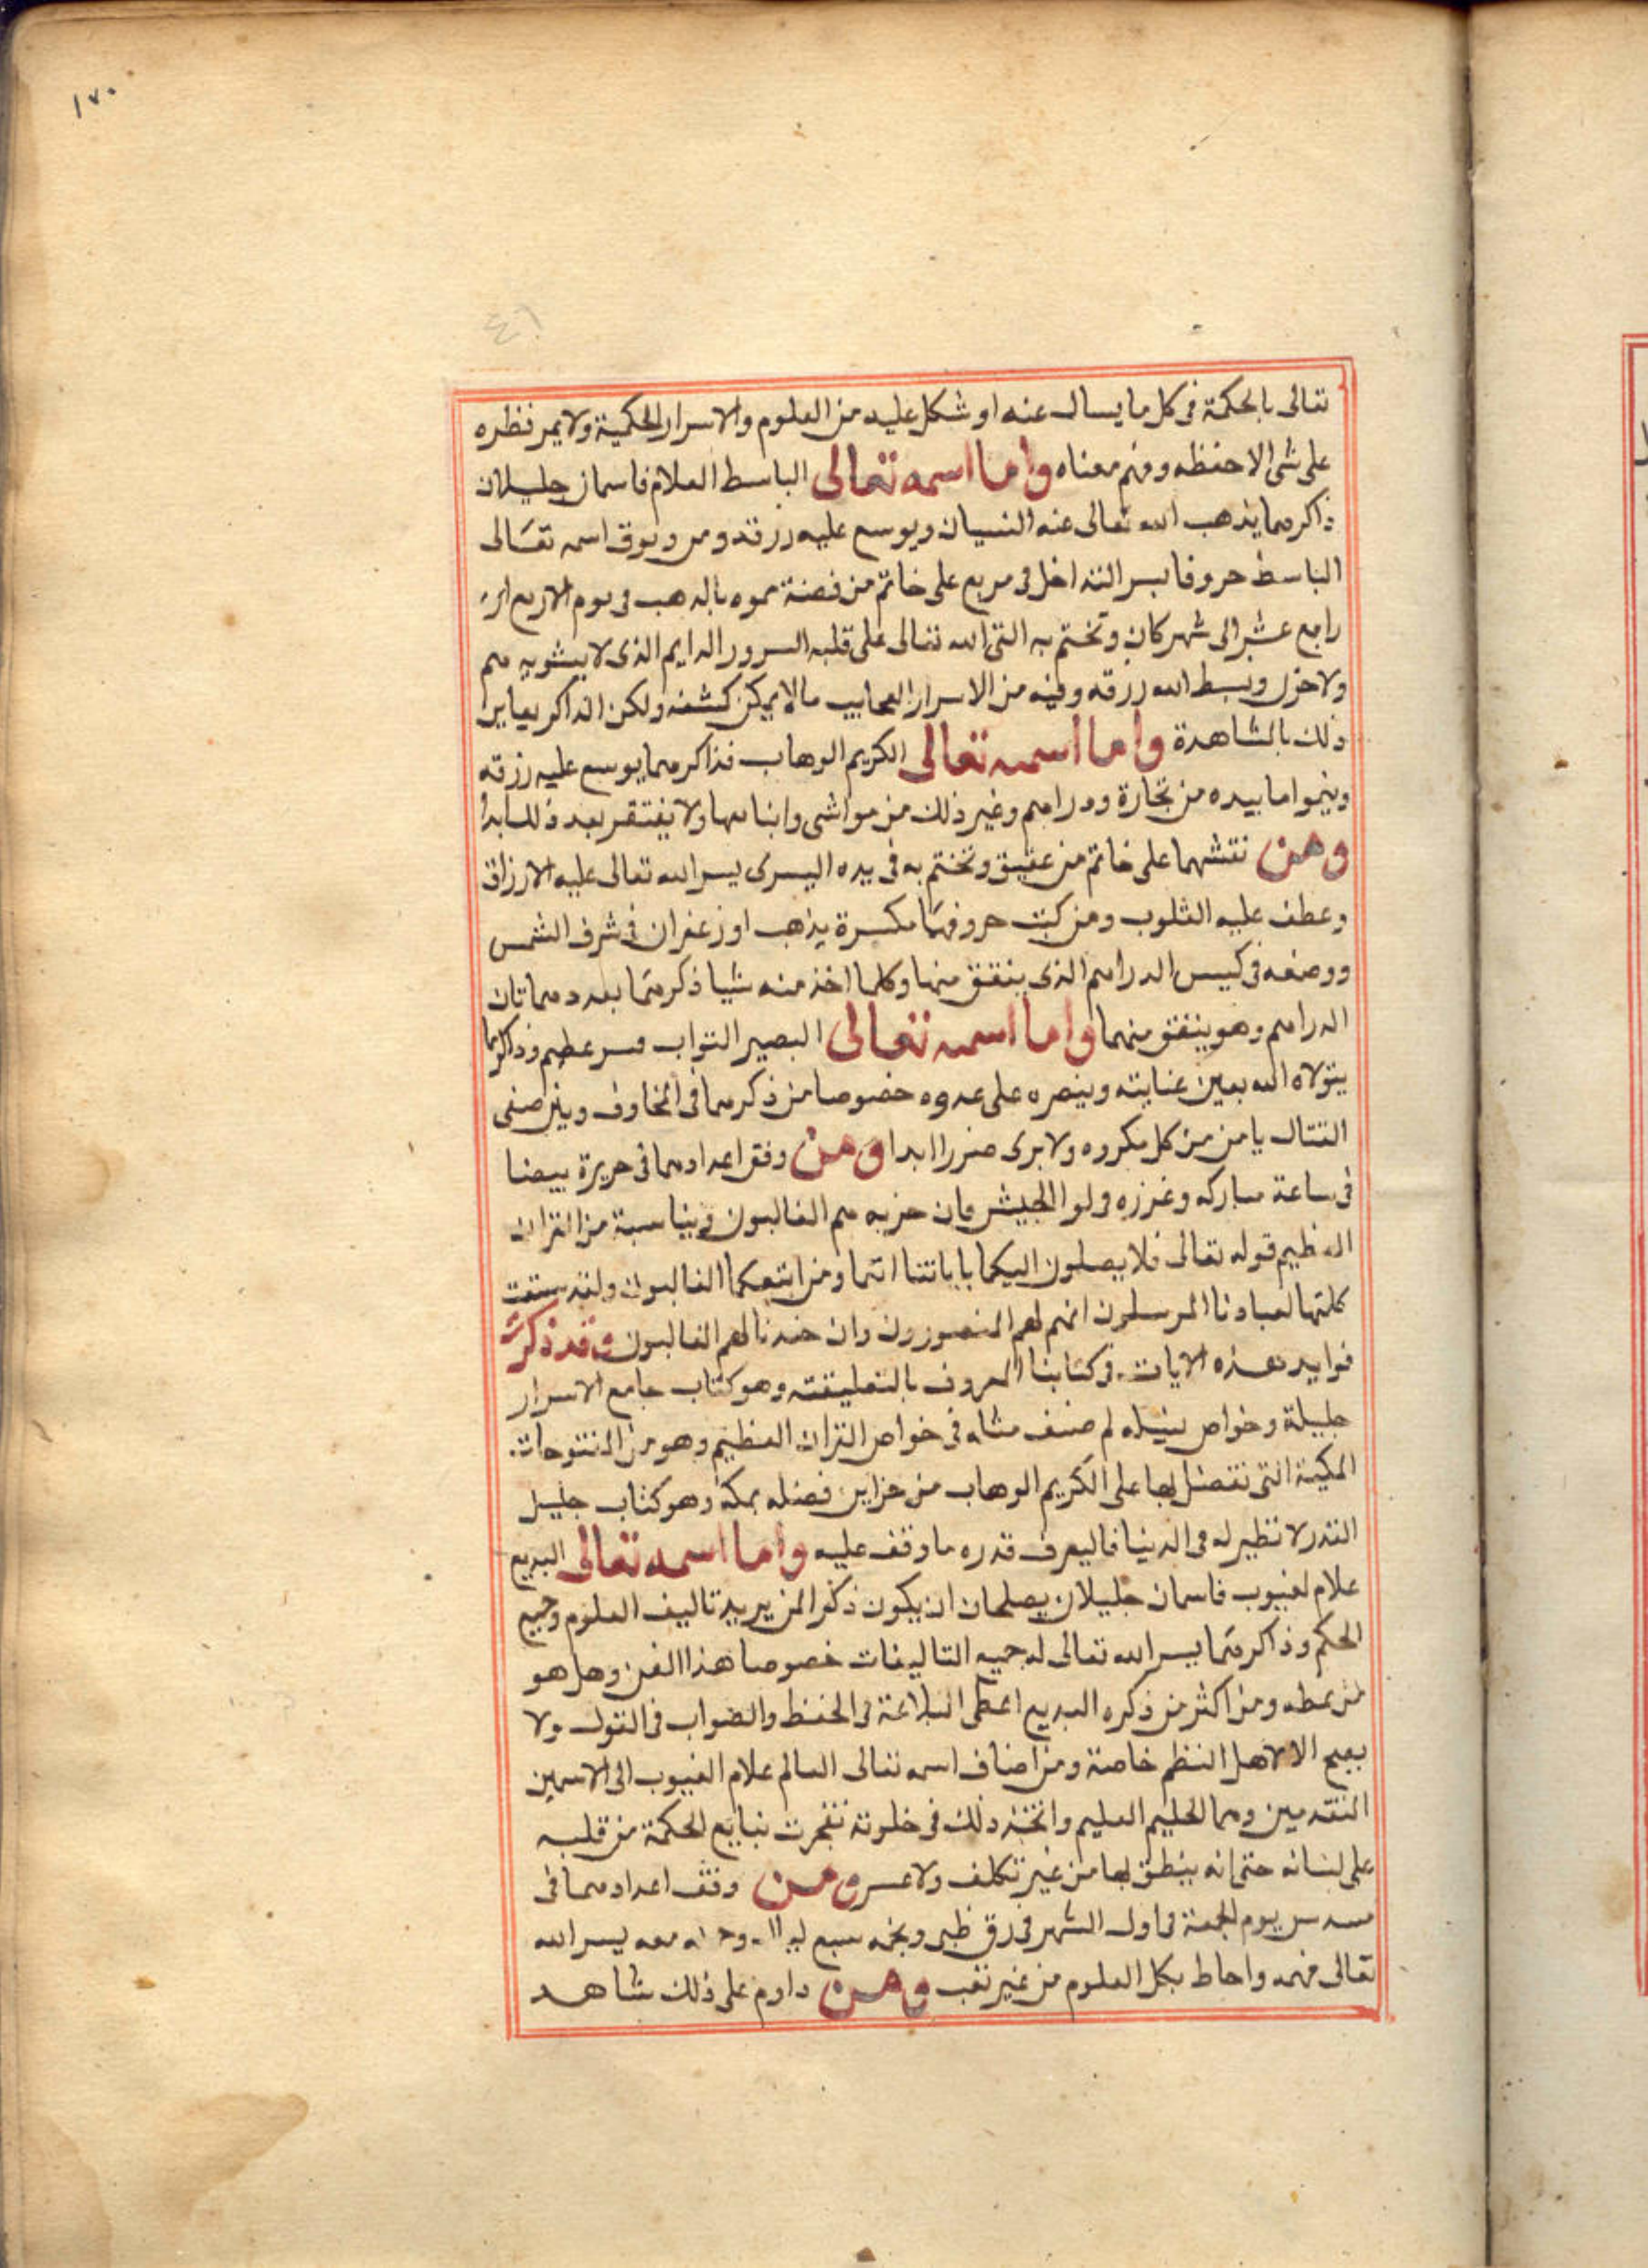 ١٧٠
تعالى بالحكمة فى كل ما يسال عنه او شكل عليه من العلوم والاسرار الحكمية ولا يمر نظره
على شى الا حفظه وفهم معناه واما اسمه تعالى الباسط العلام فاسمان جليلان
ذاكرهما يذهب الله تعالى عنه النسيان ويوسع عليه رزقه ومن وفق اسمه تعالى
الباسط حروفا بسر التداخل فى مربع على خاتم من فضة مموه بالذهب فى يوم الاربع
رابع عشر اى شهر كان وتختم به القى الله تعالى على قلبه السرور الدايم الذى لا يشوبه هم
ولا حزن وبسط الله رزقه وفيه من الاسرار العجايب مالا يمكن كشفه ولكن الذاكر يعاين
ذلك بالمشاهدة واما اسمه تعالى الكريم الوهاب فذاكرهما يوسع عليه رزقه
وينموا ما بيده من تجارة ودراهم وغير ذلك من مواشى ولا يفتقر بعد ذلك ابدا
ومن نقشهما على خاتم من عقيق وتختم به فى يده اليسرى يسر الله تعالى عليه الارزاق
وعطف عليه القلوب ومن كتب حروفهما مكسرة بذهب او زعفران فى شرف الشمس
ووضعه فى كيس الدراهم الذى ينفق منها وكلما اخذ منه شيا ذكرهما بعددهما
الدراهم وهو ينفق منهما واما اسمه تعالى البصير التواب فسر عظيم وذاكرهما
يتولاه الله بعين عنايته وينصره على عدوه خصوصا من ذكرهما فى المخاوف وبين صفى
القتال يامن من كل مكروه ولا يرى ضررا ابدا ومن وفق اعدادهما فى حريرة بيضا
فى ساعة مباركه وغرزه فى لوا الجيش فان حزبه هم الغالبون ويناسبة من القران
العظيم قوله تعالى فلا يصلون اليكما باياتنا انتما ومن اتبعكما الغالبون ولقد سبقت
كلمتنا لعبادنا المرسلون انهم لهم المنصورون وان جندنا لهم الغالبون وقد ذكرت
فوايد هذه الايات فى كتابنا المعروف بالتعليقته وهو كتاب جامع الاسرار
جليلة وخواص لم صنف مثله فى خواص القران العظيم وهو من الفتوحات
المكية التى تفضل بها على الكريم الوهاب من خزاين فضله بمكة وهو كتاب جليل
القدر لا نظير له فى الدنيا فاليعرف قدره ما وقف عليه واما اسمه تعالى البديع
علام لغيوب فاسمان جليلان يصلحان ان يكون ذكرا لمن يريد تاليف العلوم وجميع
الحكم وذاكرهما يسر الله تعالى له جميع التاليفات خصوصا هذا الفن وهل هو
من نمطه ومن اكثر من ذكره البديع اعطى البلاغة فى الحفظ والصواب فى القول ولا
الا لاهل النظم خاصة ومن اضاف اسمه تعالى العالم علام الغيوب الى الاسمين
المتقدمين وهما الحليم العليم واتخذ ذلك فى خلوته تفجرت ينابيع الحكمة من قلبه
على لسانه حتى انه ينطق بها من غير تكلف ولا عسر ومن وفق اعدادهما فى
مسدس يوم الجمعة فى اول الشهر فى رق ظبى وبخره سبع معه يسر الله
تعالى فهمه واحاط بكل العلوم من غير تعب ومن داوم على ذلك شاهد